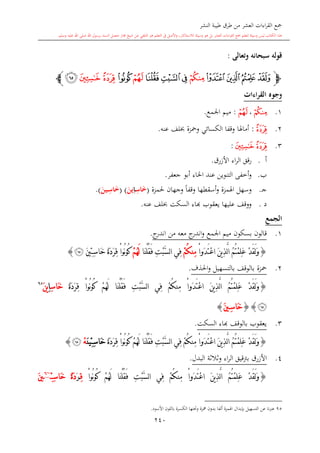 جمع القراءات العشر من طرق طيبة النشر
قوله سبحانه وتعالى :
﴿ وَلَقَدْ عَلِمْتُمُ الَّذِينَ اعْتَدَوْا مِنْكُمْ فِي السَّبْتِ فَقُلْنَا لَهُمْ كُونُوا قِرَدَةً خَاسِئِينَ ﴾
وجوه القراءات
١. مِنْكُمْ ، لَهُمْ : ميم الجمع.
٢. قِرَدَةً : أمالها وقفا الكسائي وحمزة بخلف عنه.
٣. قِرَدَةً خَاسِئِينَ :
أ. رقق الراء الأزرق.
ب. وأخفى التنوين عند الخاء أبو جعفر.
ج. وسهل الهمزة وأسقطها وقفاً وجهان لحمزة (خَاسِاين) (خَاسِين).
د. ووقف عليها يعقوب بهاء السكت بخلف عنه.
الجمع
١. قالون بسكون ميم الجمع واندرج معه من اندرج.
﴿ وَلَقَدْ عَلِمْتُمُ الَّذِينَ اعْتَدَوْا مِنْكُمْ فِي السَّبْتِ فَقُلْنَا لَهُمْ كُونُوا قِرَدَةً خَاسِئِينَ ﴾
٢. حمزة بالوقف بالتسهيل والحذف.
﴿ وَلَقَدْ عَلِمْتُمُ الَّذِينَ اعْتَدَوْا مِنْكُمْ فِي السَّبْتِ فَقُلْنَا لَهُمْ كُونُوا قِرَدَةً خَاسِاينَ
﴾ ﴿ خَاسِينَ ﴾
٣. يعقوب بالوقف بهاء السكت.
﴿ وَلَقَدْ عَلِمْتُمُ الَّذِينَ اعْتَدَوْا مِنْكُمْ فِي السَّبْتِ فَقُلْنَا لَهُمْ كُونُوا قِرَدَةً خَاسِئِينَهْ ﴾
٤. الأزرق بترقيق الراء وثلاثة البدل.
﴿ وَلَقَدْ عَلِمْتُمُ الَّذِينَ اعْتَدَوْا مِنْكُمْ فِي السَّبْتِ فَقُلْنَا لَهُمْ كُونُوا قِرَدَةً خَاسِئِينَ
٢٤٠